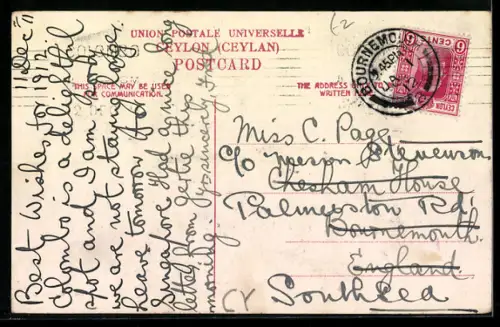 £2
UNION POSTALE UNIVERSELLE
CEYLON (CEYLAN)
POSTCARD
THIS SPACE MAY BE USED
FOR COMMUNICATION.
THE ADDRESS
WRITTEN
BOURNEMOUTH
6 CENTS 6
CEYLON
11 Dec 11
Best Wishes for 1912
Colombo is a delightful
spot and I am sorry
we are not staying longer.
Leave tomorrow for
Singapore. Had a nice long
letter from Gertie this
morning. Yrs sincerely
Miss C. Page
c/o Stevenson
Chesham House
Palmerston Rd.
Bournemouth
England
Southsea